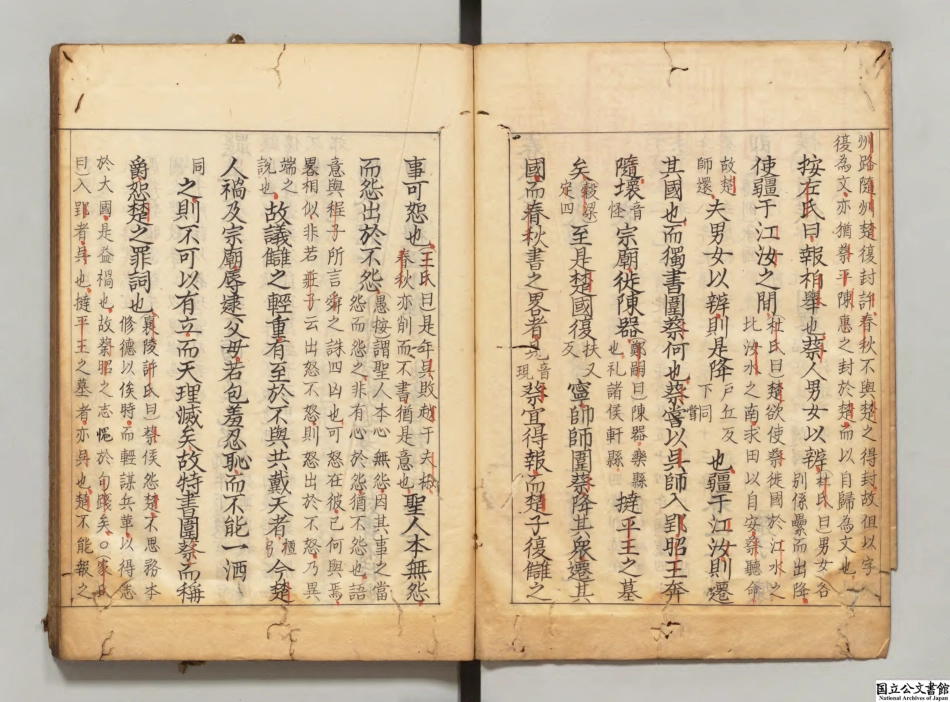 州路隨州楚復封許春秋不與楚之得封故但以字
復為文亦猶蔡平陳惠之封於楚而以自歸為文也
按左氏曰報柏舉也蔡人男女以辨杜氏曰男女各
別係纍而出降
使疆于江汝之間杜氏曰楚欲使蔡徙國於江水之
北汝水之南求田以自安蔡聽命
故楚師還夫男女以辨則是降戶江反下同也疆于江汝則遷
其國也而獨書圍蔡何也蔡嘗以吳師入郢昭王奔
隨壞音怪宗廟徙陳器鄭嗣曰陳樂縣也礼諸侯軒縣撻平王之墓
矣穀梁定四至是楚國復扶又反寧師師圍蔡降其衆遷其
國而春秋書之畧者見音現蔡宜得報而楚子復讎之
事可恕也王氏曰是年吳敗越于夫椒春秋亦削而不書猶是意也聖人本無怨
而怨出於不怨愚按謂聖人本心無怨因其事之當
怨而怨之非有心於怨猶不怨也語
意與程子所言舜之誅四凶也可怒在彼已何與焉
畧相似非若莊子云出怒不怒則怒出於不怒乃異
端之說也故議讎之輕重有至於不與共戴天者檀弓今楚
人禍及宗廟辱逮父母若包羞忍恥而不能一洒
同之則不可以有立而天理滅矣故特書圍蔡而稱
爵恕楚之罪詞也襄陵許氏曰蔡侯怨楚不思務本
修德以俟時而輕謀兵革以得志
於大國是益禍也故蔡昭之志愧於句踐矣○家氏
曰入郢者吳也撻平王之墓者亦吳也楚不能報之
国立公文書館
National Archives of Japan